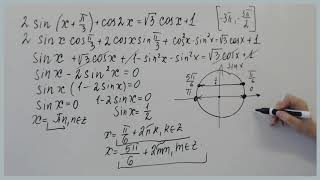 2 sin (x + π/3) + cos2x = √3 cosx + 1 [-3π, -3π/2]
2 sinx cos π/3 + 2cosx sin π/3 + cos²x - sin²x = √3 cosx + 1
sinx + √3 cosx + 1 - sin²x - sin²x = √3 cosx + 1
sinx - 2sin²x = 0
sinx (1 - 2sinx) = 0
sinx = 0 1 - 2sinx = 0
x = πn, n∈z sinx = 1/2
x = π/6 + 2πk, k∈z
x = 5π/6 + 2πm, m∈z
sinx
5π/6 π/6
π 0